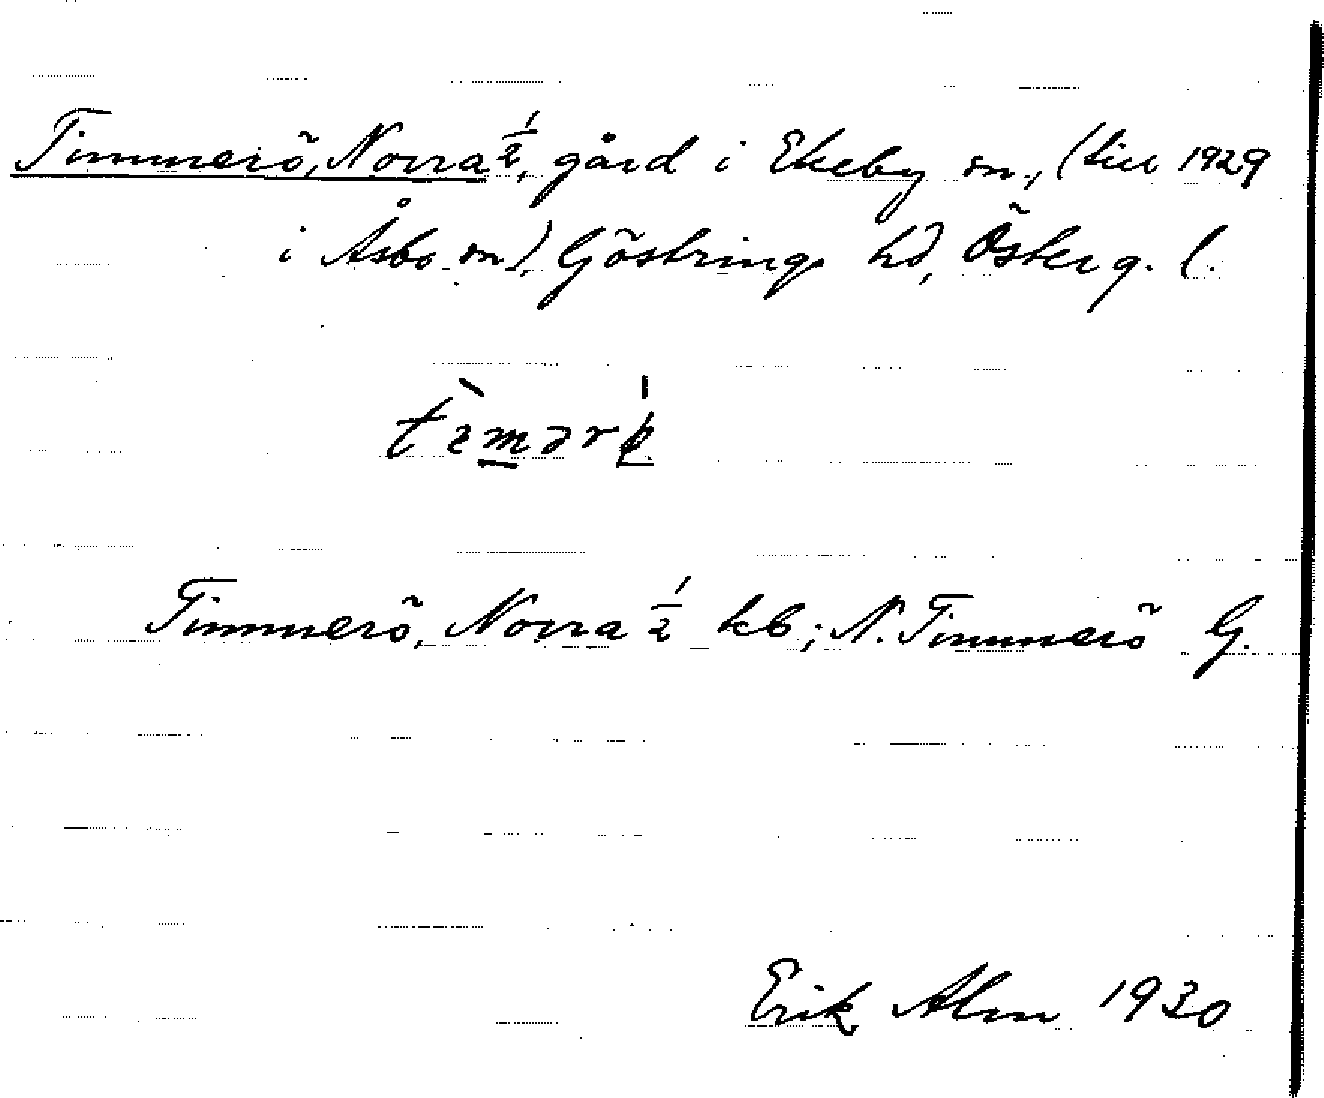 Timmerö, Norra 1/2, gård i Ekeby sn, (till 1929
i Åsbo sn), Göstrings hd, Österg. l.
Timmerö, Norra 1/2 kb; N. Timmerö G.
Erik Alm 1930